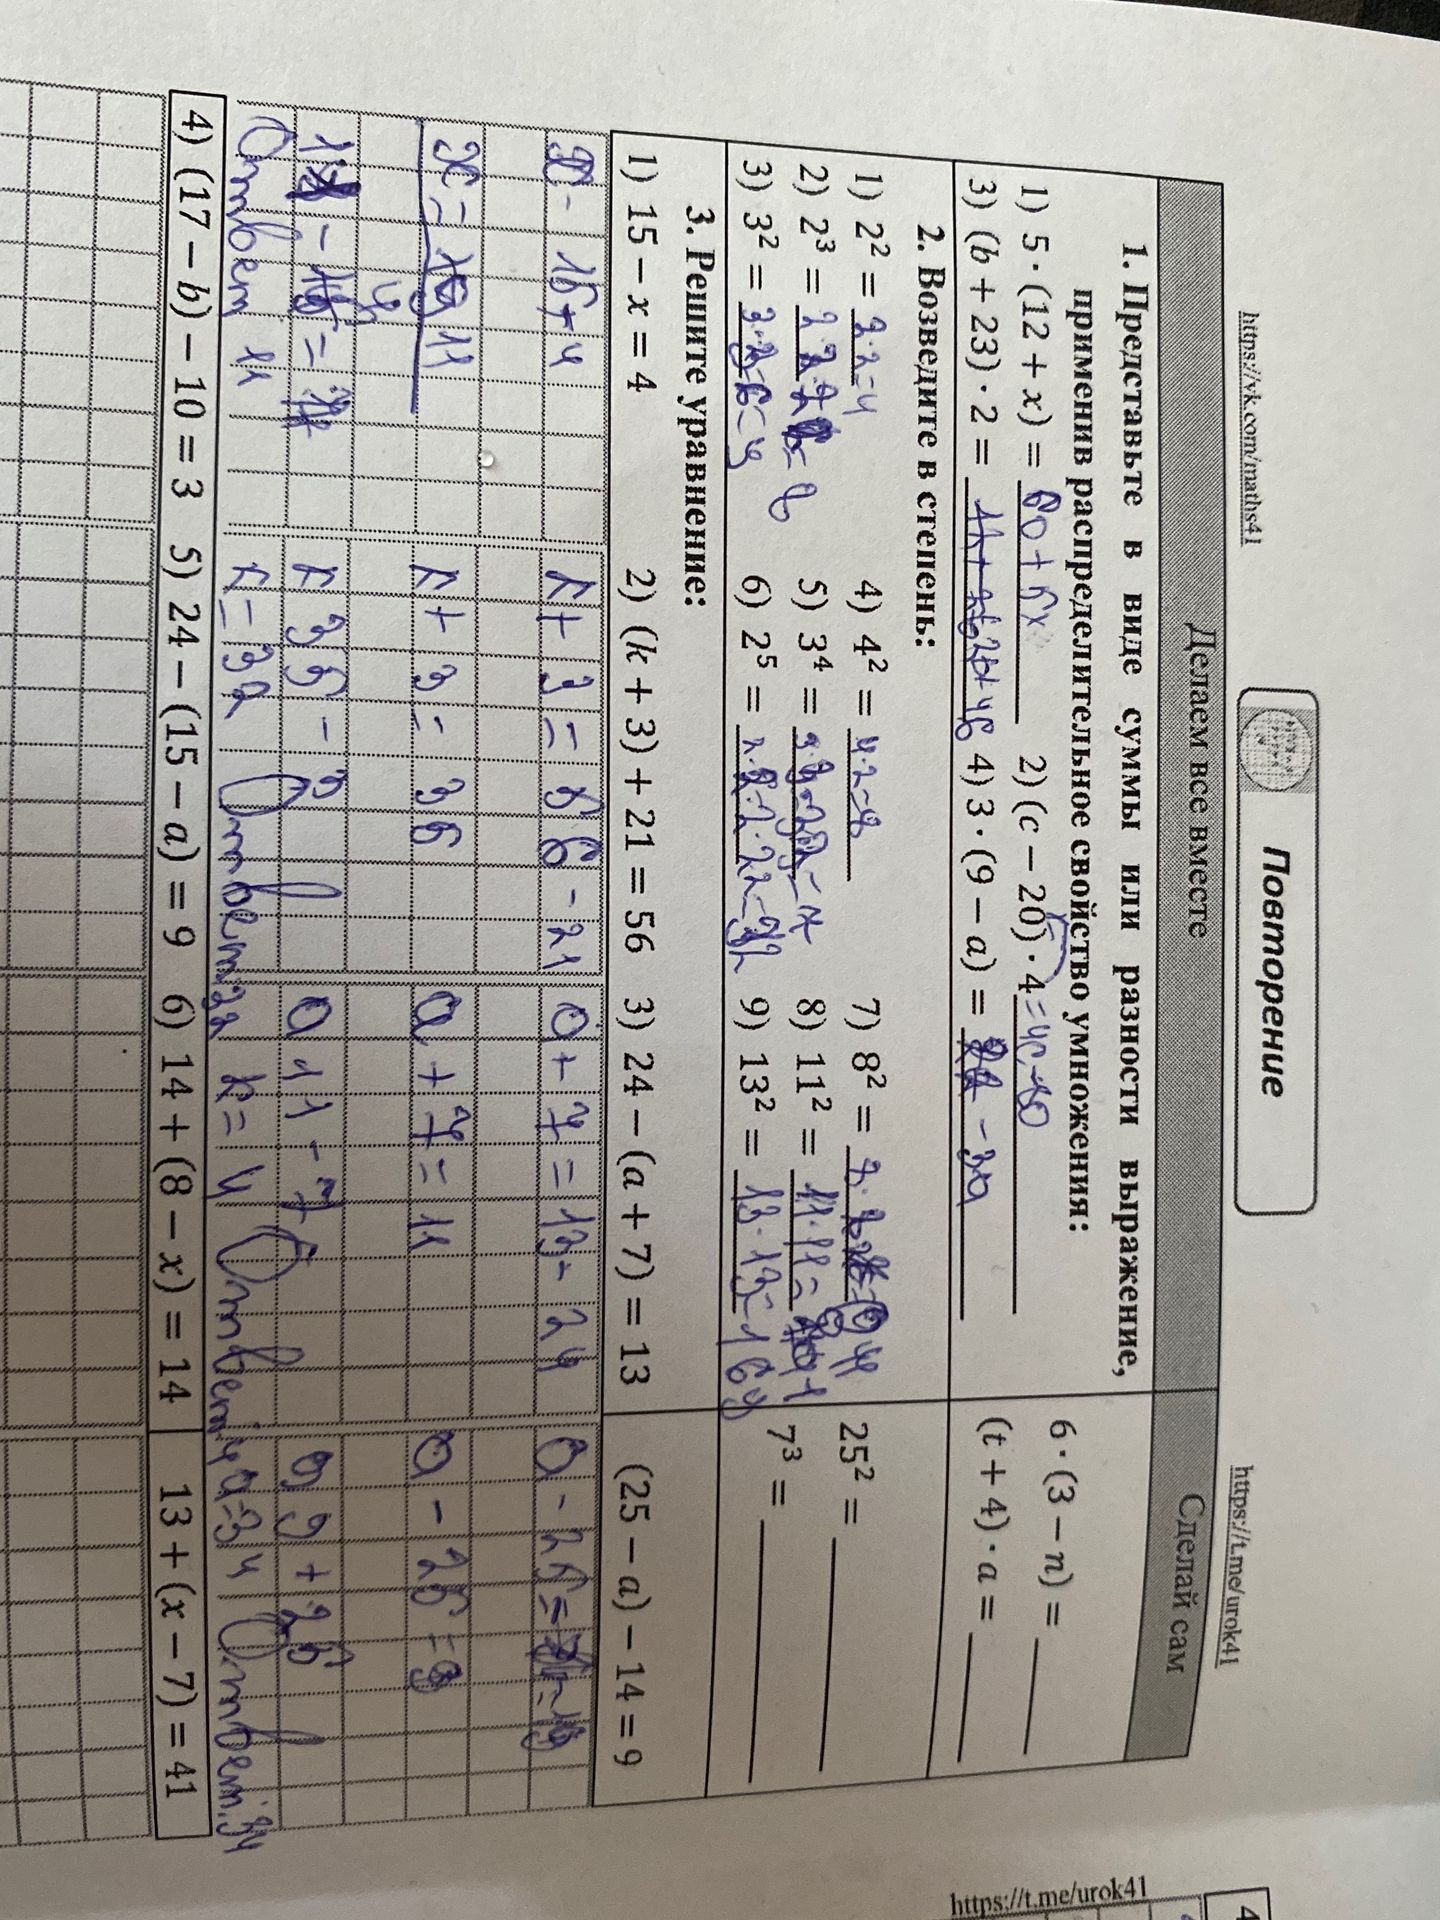 https://vk.com/maths41
Повторение
https://t.me/urok41
Делаем все вместе
Сделай сам
1. Представьте в виде суммы или разности выражение,
применив распределительное свойство умножения:
1) 5 · (12 + x) = 60 + 5x 2) (c − 20) · 4 = 4c-80
3) (b + 23) · 2 = 2b+46 4) 3 · (9 − a) = - 3a
6 · (3 − n) =
(t + 4) · a =
2. Возведите в степень:
1) 2² = 2·2=4 4) 4² = 4·2=8 7) 8² =
2) 2³ = 8 5) 3⁴ = 8) 11² = 11·11=
3) 3² = 6) 2⁵ = 9) 13² = 13·13=169
25² =
7³ =
3. Решите уравнение:
1) 15 − x = 4 2) (k + 3) + 21 = 56 3) 24 − (a + 7) = 13
(25 − a) − 14 = 9
x- 15+4 к+3=56-21 а+7=13-24 а-25=
x= 11 к+3=35 а+7=11 а-25=9
к 35-3 а 11-7 а 9+25
Ответ 11 к=32 Ответ 32 к=4 Ответ 4 а=34 Ответ: 34
4) (17 − b) − 10 = 3 5) 24 − (15 − a) = 9 6) 14 + (8 − x) = 14
13 + (x − 7) = 41
https://t.me/urok41
4